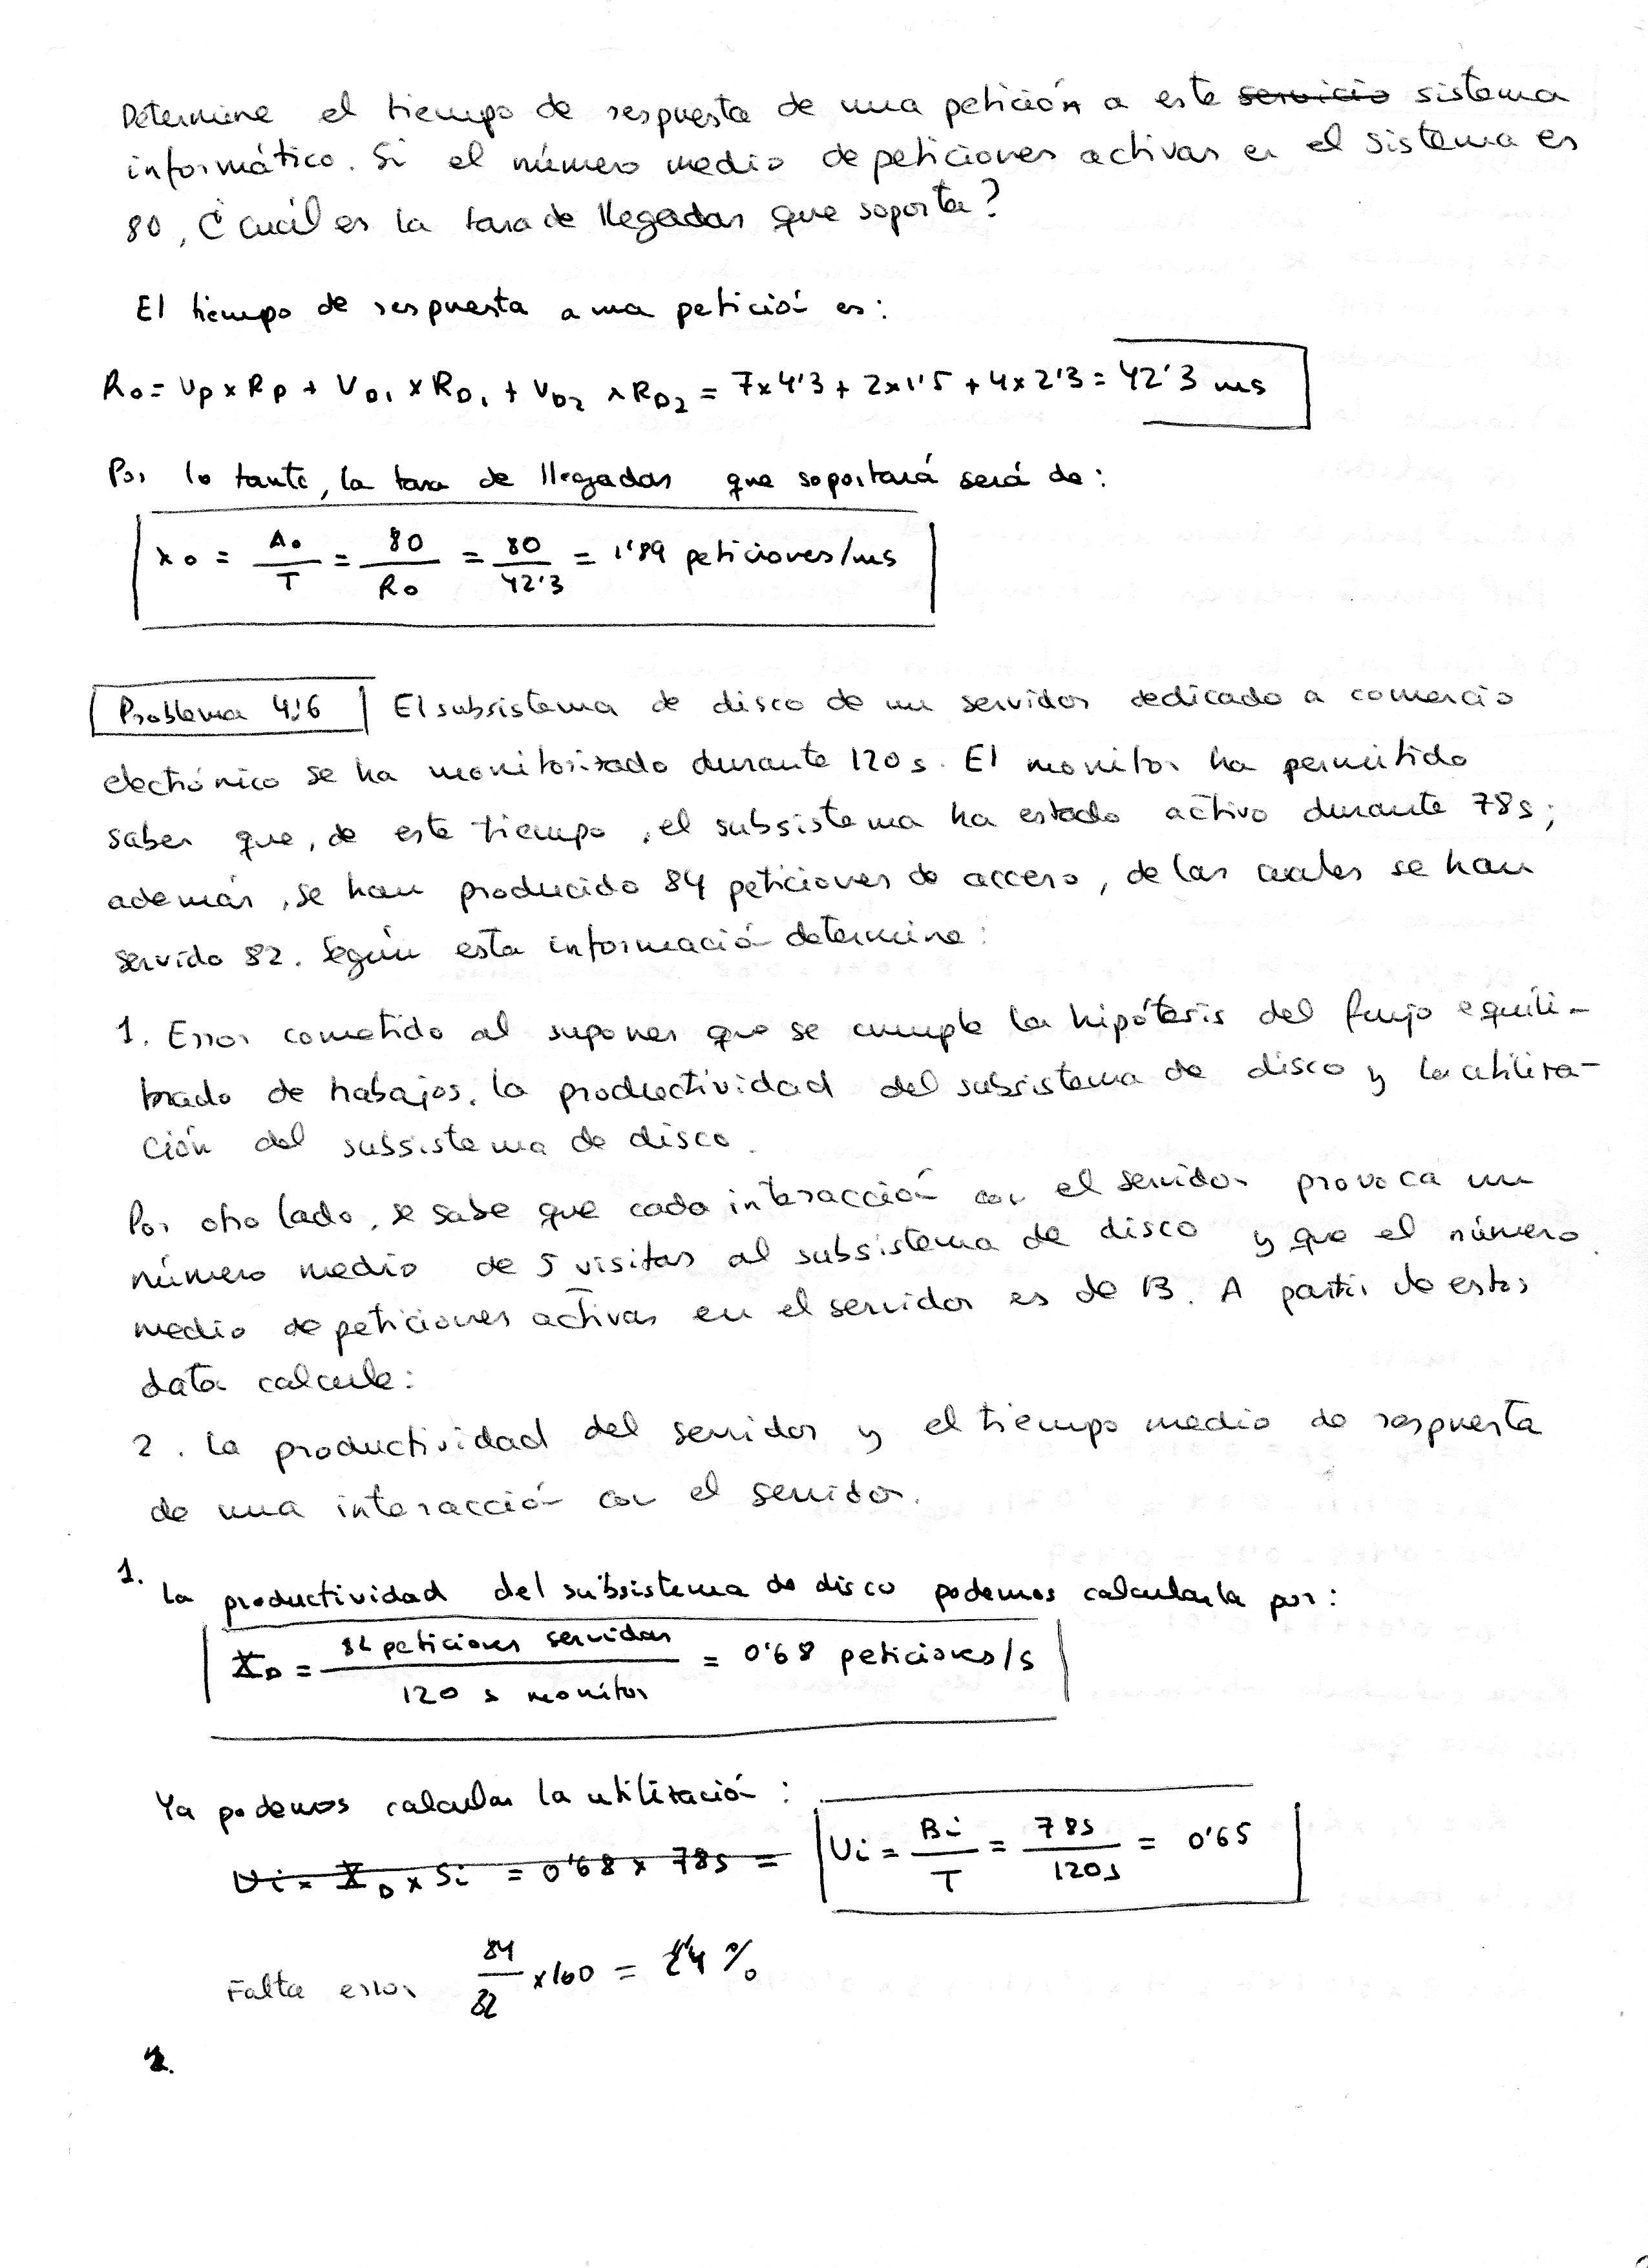 Determine el tiempo de respuesta de una petición a este servicio sistema
informático. Si el número medio de peticiones activas en el sistema es
80, ¿cuál es la tasa de llegadas que soporta?
El tiempo de respuesta a una petición es:
R0 = VP x RP + VD1 x RD1 + VD2 x RD2 = 7x4'3 + 2x1'5 + 4x2'3 = 42'3 ms
Por lo tanto, la tasa de llegadas que soportará será de:
X0 = A0/T = 80/R0 = 80/42'3 = 1'89 peticiones/ms
Problema 4.6 El subsistema de disco de un servidor dedicado a comercio
electrónico se ha monitorizado durante 120 s. El monitor ha permitido
saber que, de este tiempo, el subsistema ha estado activo durante 78s;
además, se han producido 84 peticiones de acceso, de las cuales se han
servido 82. Según esta información determine:
1. Error cometido al suponer que se cumple la hipótesis del flujo equili-
brado de trabajos, la productividad del subsistema de disco y la utiliza-
ción del subsistema de disco.
Por otro lado, se sabe que cada interacción con el servidor provoca un
número medio de 5 visitas al subsistema de disco y que el número
medio de peticiones activas en el servidor es de 13. A partir de estos
datos calcule:
2. La productividad del servidor y el tiempo medio de respuesta
de una interacción con el servidor.
1. La productividad del subsistema de disco podemos calcularla por:
XD = 82 peticiones servidas / 120 s monitor = 0'68 peticiones/s
Ya podemos calcular la utilización:
Ui = XD x Si = 0'68 x 78s = Ui = Bi/T = 78s/120s = 0'65
Falta error 84/82 x100 = 2'4 %
2.